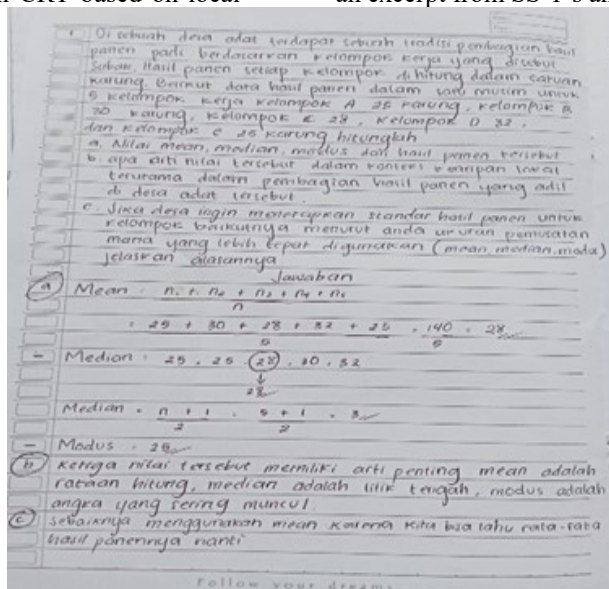 1. Di sebuah desa adat terdapat sebuah tradisi pembagian hasil
panen padi berdasarkan kelompok kerja yang disebut
subak. Hasil panen setiap kelompok dihitung dalam satuan
karung. Berikut data hasil panen dalam satu musim untuk
5 kelompok kerja kelompok A 25 karung, kelompok B
30 karung, kelompok C 28, kelompok D 32,
dan kelompok e 25 karung hitunglah
a. Nilai mean, median, modus dari hasil panen tersebut
b. apa arti nilai tersebut dalam konteks lokal
terutama dalam pembagian hasil panen yang adil
di desa adat tersebut.
c. Jika desa ingin menerapkan standar hasil panen untuk
kelompok menurut anda ukuran pemusatan
mana yang lebih tepat digunakan (mean, median, modus)
jelaskan alasannya
Jawaban
a Mean = n1 + n2 + n3 + n4 + n5
n
= 25 + 30 + 28 + 32 + 25 = 140 = 28
5 5
- Median = 25, 25, 28, 30, 32
28
Median = n + 1 = 5 + 1 = 3
2 2
- Modus = 25
b ketiga nilai tersebut memiliki arti penting mean adalah
rataan hitung, median adalah titik tengah, modus adalah
angka yang sering muncul.
c sebaiknya menggunakan mean karena kita bisa tahu rata-rata
hasil panennya nanti
Follow your dreams